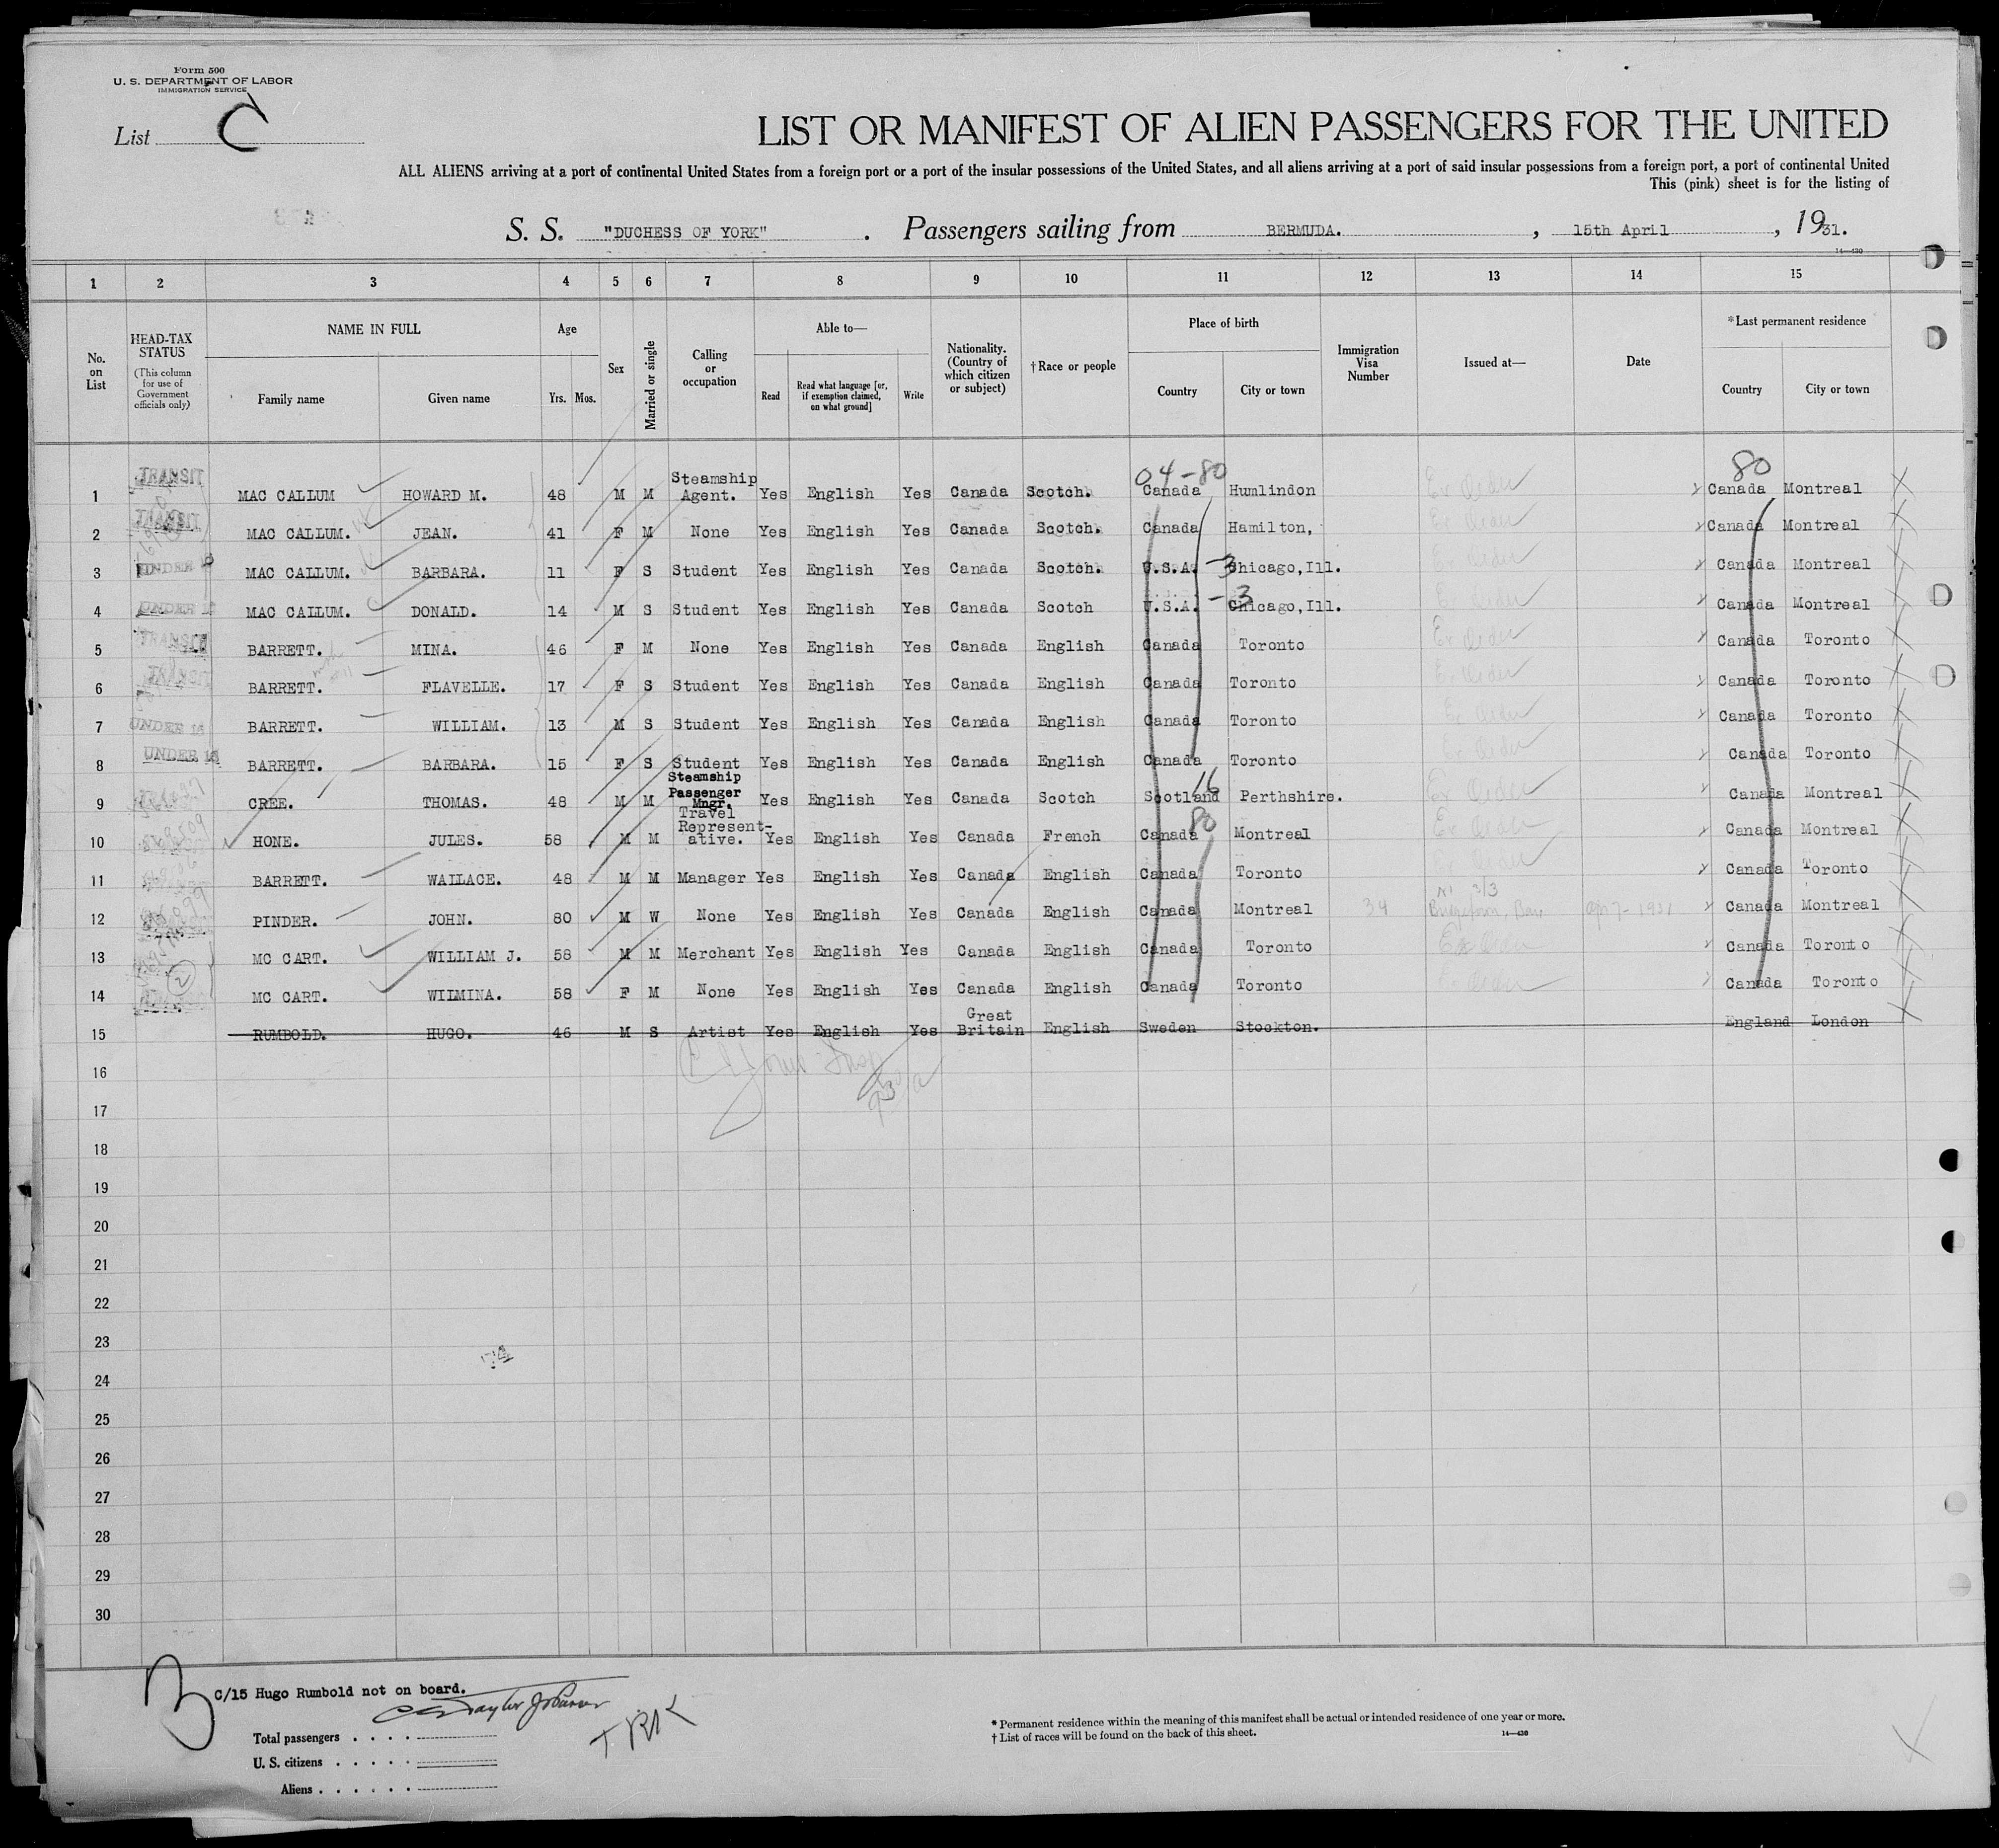 Form 500
U. S. DEPARTMENT OF LABOR
IMMIGRATION SERVICE
List C
LIST OR MANIFEST OF ALIEN PASSENGERS FOR THE UNITED
ALL ALIENS arriving at a port of continental United States from a foreign port or a port of the insular possessions of the United States, and all aliens arriving at a port of said insular possessions from a foreign port, a port of continental United
This (pink) sheet is for the listing of
S. S. "DUCHESS OF YORK" . Passengers sailing from BERMUDA. , 15th April , 1931.
14—430
1 2 3 4 5 6 7 8 9 10 11 12 13 14 15
No. on List
HEAD-TAX STATUS (This column for use of Government officials only)
NAME IN FULL
Family name Given name
Age
Yrs. Mos.
Sex
Married or single
Calling or occupation
Able to—
Read
Read what language [or, if exemption claimed, on what ground]
Write
Nationality. (Country of which citizen or subject)
†Race or people
Place of birth
Country City or town
Immigration Visa Number
Issued at—
Date
*Last permanent residence
Country City or town
04-80 80
1 TRANSIT MAC CALLUM HOWARD M. 48 M M Steamship Agent. Yes English Yes Canada Scotch. Canada Humlindon Canada Montreal
2 TRANSIT MAC CALLUM. JEAN. 41 F M None Yes English Yes Canada Scotch. Canada Hamilton, Canada Montreal
3 UNDER MAC CALLUM. BARBARA. 11 F S Student Yes English Yes Canada Scotch. U.S.A. -3 Chicago,Ill. Canada Montreal
4 UNDER 16 MAC CALLUM. DONALD. 14 M S Student Yes English Yes Canada Scotch U.S.A. -3 Chicago,Ill. Canada Montreal
5 TRANSIT BARRETT. MINA. 46 F M None Yes English Yes Canada English Canada Toronto Canada Toronto
6 TRANSIT BARRETT. FLAVELLE. 17 F S Student Yes English Yes Canada English Canada Toronto Canada Toronto
7 UNDER 16 BARRETT. WILLIAM. 13 M S Student Yes English Yes Canada English Canada Toronto Canada Toronto
8 UNDER 16 BARRETT. BARBARA. 15 F S Student Yes English Yes Canada English Canada Toronto Canada Toronto
9 CREE. THOMAS. 48 M M Steamship Passenger Mngr. Yes English Yes Canada Scotch Scotland 16 Perthshire. Canada Montreal
10 HONE. JULES. 58 M M Travel Represent-ative. Yes English Yes Canada French Canada 80 Montreal Canada Montreal
11 BARRETT. WALLACE. 48 M M Manager Yes English Yes Canada English Canada Toronto Canada Toronto
12 PINDER. JOHN. 80 M W None Yes English Yes Canada English Canada Montreal 34 Apr 7-1931 Canada Montreal
13 MC CART. WILLIAM J. 58 M M Merchant Yes English Yes Canada English Canada Toronto Canada Toronto
14 MC CART. WILMINA. 58 F M None Yes English Yes Canada English Canada Toronto Canada Toronto
15 RUMBOLD. HUGO. 46 M S Artist Yes English Yes Great Britain English Sweden Stockton. England London
16
17
18
19
20
21
22
23
24
25
26
27
28
29
30
3
C/15 Hugo Rumbold not on board.
Total passengers . . . .
U. S. citizens . . . . .
Aliens . . . . . .
* Permanent residence within the meaning of this manifest shall be actual or intended residence of one year or more.
† List of races will be found on the back of this sheet.
14—430